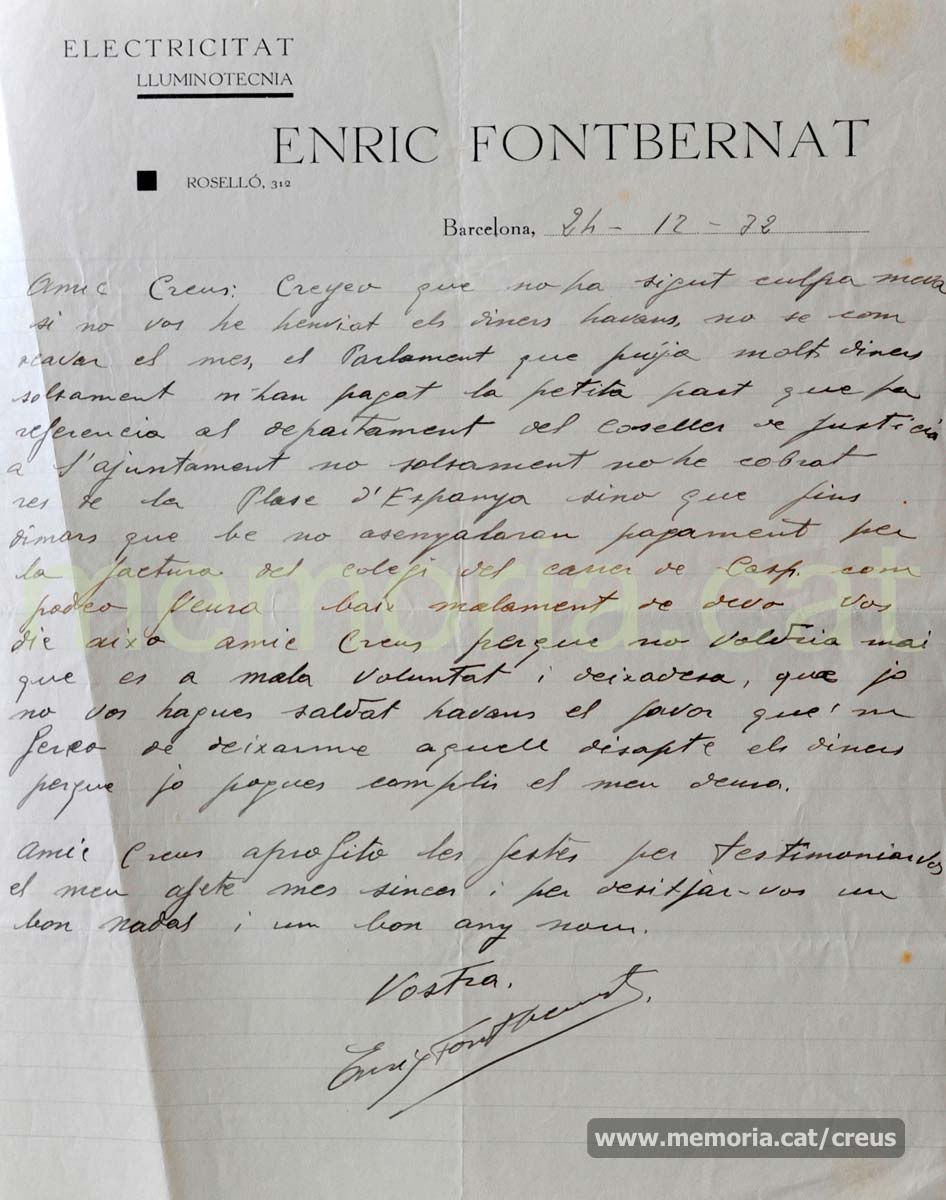 ELECTRICITAT
LLUMINOTECNIA
ENRIC FONTBERNAT
ROSELLÓ, 312
Barcelona, 24 - 12 - 32
Amic Creus: Creyeo que no ha sigut culpa meva
si no vos he henviat els diners havans, no se com
acavar el mes, el Parlament que puja molts diners
solsament m'han pagat la petita part que fa
referencia al departament del Coseller de Justicia
a l'ajuntament no solsament no he cobrat
res de la Plase d'Espanya sino que fins
dimars que be no asenyalaran pagament per
la factura del colegi del carrer de Casp. com
podeo veura baix malament de devo vos
dic aixo amic Creus perque no voldria mai
que es a mala voluntat i deixadesa, que jo
no vos hagues saldat havans el favor que'm
fereo de deixarme aquell disapte els diners
perque jo pogues complir el meu deura.
Amic Creus aprofito les festes per testimoniarvos
el meu afete mes sincer i per desitjar-vos un
bon nadal i un bon any nou.
Vostra.
Enric Fontbernat.
memoria.cat
www.memoria.cat/creus